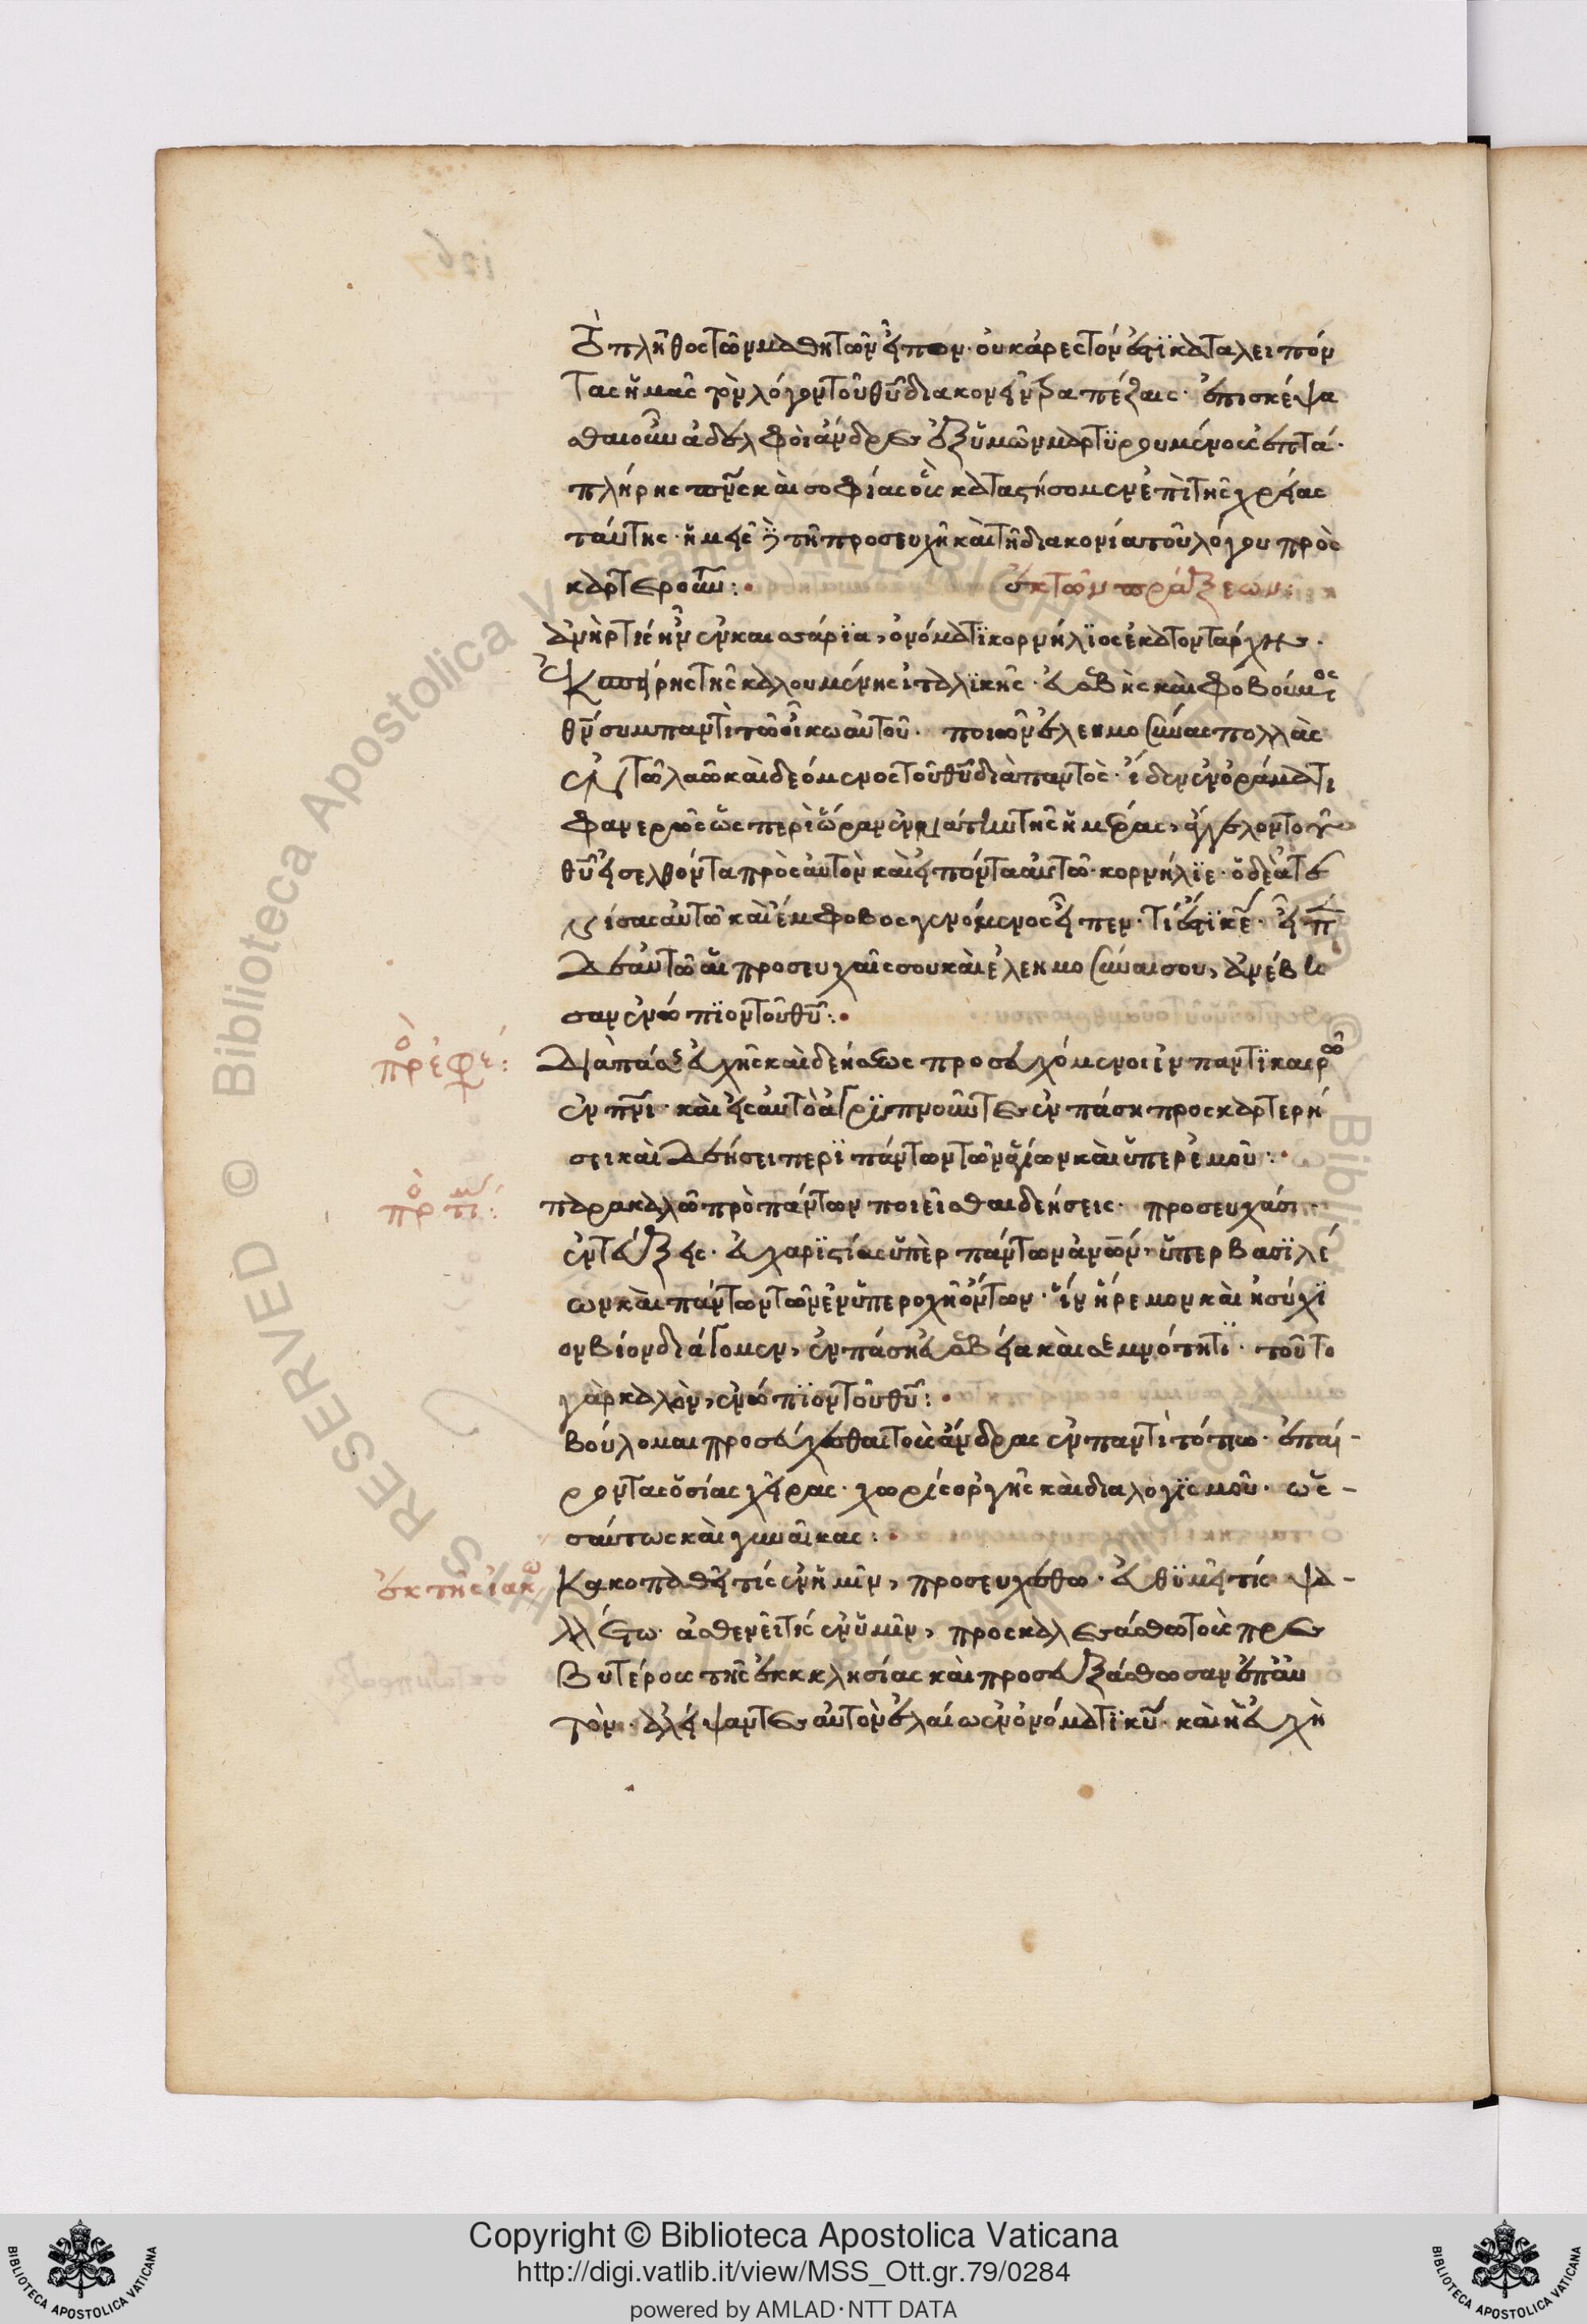 Τὸ πλῆθος τῶν μαθητῶν εἶπον· οὐκ ἀρεστόν ἐστϊ καταλειπόν
τας ἡμᾶς τὸν λόγον τοῦ θῡ διακονεῖν τραπέζαις· ἐπισκέψα
σθαι οὖν ἀδελφοὶ ἄνδρες ἐξ ὑμῶν μαρτϋρουμένους ἑπτά·
πλήρης πνς καὶ σοφίας οὓς καταστήσομεν ἐπὶ τῆς χρείας
ταύτης· ἡμεῖς δὲ τῆ προσευχῆ καὶ τῆ διακονία τοῦ λόγου προσ
καρτεροῦν:·
ἐκ τῶν πράξεων:
ἀνὴρ τίς ἦν ἐν καισαρία, ὀνόματϊ κορνήλϊος ἑκατοντάρχης·
ἐκ σπείρης τῆς καλουμένης ἰταλϊκῆς· εὐσεβὴς καὶ φοβούμενος
θν σὺμ παντὶ τῶ οἴκω αὐτοῦ· ποιῶν ἐλεημοσύνας πολλὰς
ἐν τῶ λαῶ καὶ δεόμενος τοῦ θῡ διὰ παντὸς· ἴδεν ἐν ὁράματι
φανερῶς ὡς περὶ ὥραν ἐννάτην τῆς ἡμέρας, ἄγγελον τοῦ
θῡ εἰσελθόντα πρὸς αὐτὸν καὶ εἰπόντα αὐτῶ· κορνήλϊε· ὁ δὲ ἀτε
νίσας αὐτῶ καὶ ἔμφοβος γενόμενος εἶπεν· τί ἐστϊ κε· εἶπ
δε αὐτῶ αἱ προσευχαῖς σου καὶ ἐλεημοσύναι σου, ἀνέβη
σαν ἐνώπϊον τοῦ θῡ:·
πρ ὸ ἐφε:
Διὰ πάσης εὐχῆς καὶ δεήσεως προσευχόμενοι ἐν παντϊ καιρῶ
ἐν πνι· καὶ εἰς αὐτὸ ἀγρϊπνοῦντες ἐν πάση προσκαρτερή
σει καὶ δεήσει περϊ πάντων τῶν ἁγίων καὶ ὑπερ ἐμοῦ:·
πρ ὸ τιμ:
παρακαλῶ πρὸ πάντων ποιεῖσθαι δεήσεις· προσευχάσ·
ἐντεύξεις· εὐχαρϊστίας ὑπὲρ πάντων ἀνων, ὑπερ βασϊλέ
ων καὶ πάντων τῶν ἐν ὑπεροχῆ ὄντων· ἵν ἤρεμον καὶ ἡσύχϊ
ον βίον διάγομεν, ἐν πάση εὐσεβεία καὶ σεμνότητϊ· τοῦτο
γὰρ καλὸν, ἐνώπϊον τοῦ θῡ:·
βούλομαι προσεύχεσθαι τοὺς ἄνδρας ἐν παντὶ τόπω· ἐπαί-
ροντας ὁσίας χεῖρας· χωρίς ὀργῆς καὶ διαλογϊσμοῦ· ὡς-
σαύτως καὶ γυναῖκας:·
ἐκ τῆς ἰακω
Κακοπαθεῖ τίς ἐν ἡμῖν, προσευχέσθω· εὐθϋμεῖ τίς ψα-
λλέτω· ἀσθενεῖ τίς ἐν ὑμῖν, προσκαλεσάσθω τοὺς πρεσ
βυτέρους τῆς ἐκκκλησίας καὶ προσευξάσθωσαν ἐπ αὐ
τὸν· ἀλείψαντες αὐτὸν ἐλαίω ἐν ὀνόματϊ κῡ· καὶ ἡ εὐχὴ
Copyright © Biblioteca Apostolica Vaticana
http://digi.vatlib.it/view/MSS_Ott.gr.79/0284
powered by AMLAD·NTT DATA